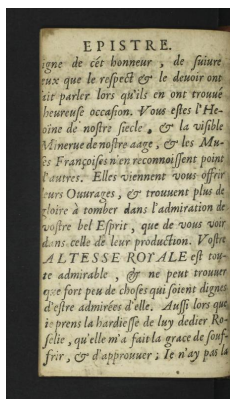 EPISTRE.
igne de cét honneur, de suiure
eux que le respect & le deuoir ont
ait parler lors qu'ils en ont trouué
heureuse occasion. Vous estes l'He-
oine de nostre siecle, & la visible
Minerue de nostre aage, & les Mu-
es Françoises n'en reconnoissent point
d'autres. Elles viennent vous offrir
eurs Ouurages, & trouuent plus de
gloire à tomber dans l'admiration de
vostre bel Esprit, que de vous voir
dans celle de leur production. Vostre
ALTESSE ROYALE est tou-
te admirable, & ne peut trouuer
que fort peu de choses qui soient dignes
d'estre admirées d'elle. Aussi lors que
ie prens la hardiesse de luy dedier Ro-
selie, qu'elle m'a fait la grace de souf-
frir, & d'approuuer; Ie n'ay pas la